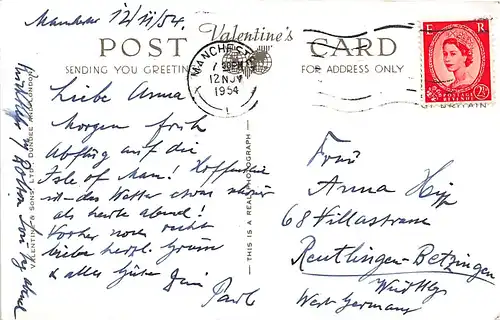 12/11/54.
Valentine's
POST CARD
SENDING YOU GREETINGS
FOR ADDRESS ONLY
MANCHESTER
7 30 PM
12 NOV
1954
E R
POSTAGE
REVENUE
2½
Liebe Anna
Morgen früh
Abflug auf die
Isle of Man! Hoffentlich
ist das Wetter etwas
als heute abend!
Vorher noch recht
lieben herzl. Gruss
& alles Gute Dein
Paul
Frau
Anna
68 Villastrasse
Reutlingen-Betzingen
West Germany
THIS IS A REAL PHOTOGRAPH
VALENTINE & SONS, LTD., DUNDEE AND LONDON